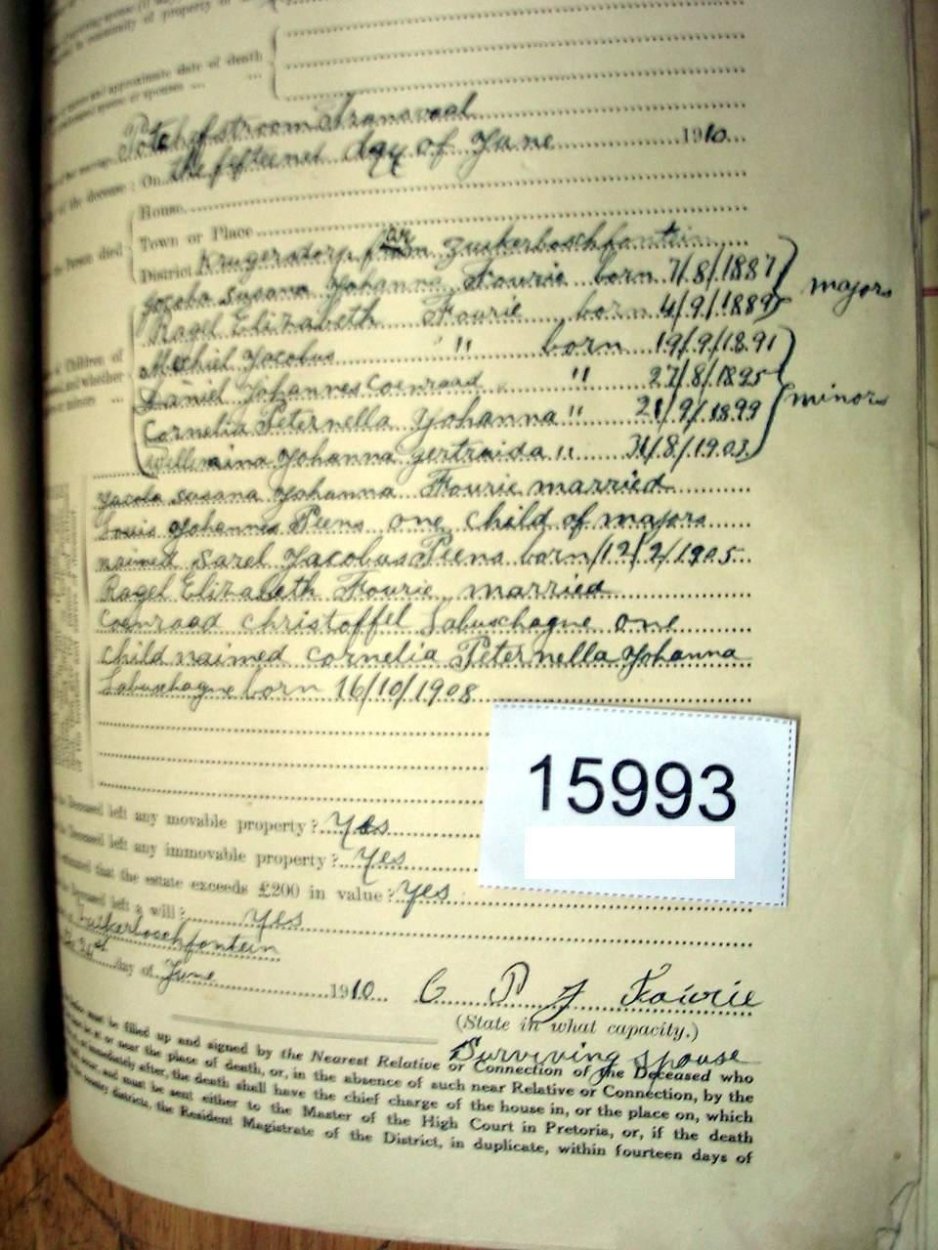 approximate date of death
Potchefstroom Transvaal
On the fifteenet day of Jane 1910
House
Town or Place
District Krugersdorp farm Zuikerboschfontein
Jacoba Susana Johanna Fourie born 7/8/1887
majors
Ragel Elizabeth Fourie born 4/9/1889
Mechiel Jacobus " born 19/9/1891
Daniel Johannes Coenraad " 27/8/1895
minors
Cornelia Peternella Johanna " 21/9/1899
Willemina Johanna Gertraida " 31/8/1903
Jacoba Susana Johanna Fourie married
Louis Johannes Peens one child of majors
naimed Sarel Jacobus Peens born 12/2/1905
Ragel Elizabeth Fourie married
Coenraad Christoffel Labuschagne one
child naimed Cornelia Peternella Johanna
Labuschagne born 16/10/1908
15993
Deceased left any movable property? Yes
Deceased left any immovable property? Yes
estimated that the estate exceeds £200 in value? Yes
Deceased left a will? Yes
Zuikerboschfontein
day of June 1910 C P J Fourie
(State in what capacity.)
Surviving spouse
must be filled up and signed by the Nearest Relative or Connection of the Deceased who
at or near the place of death, or, in the absence of such near Relative or Connection, by the
immediately after, the death shall have the chief charge of the house in, or the place on, which
and must be sent either to the Master of the High Court in Pretoria, or, if the death
districts, the Resident Magistrate of the District, in duplicate, within fourteen days of